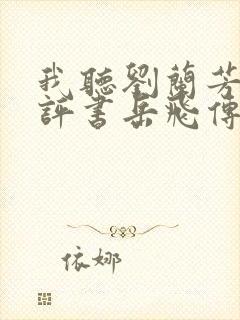 我聽劉蘭芳
評書岳飛傳
依娜